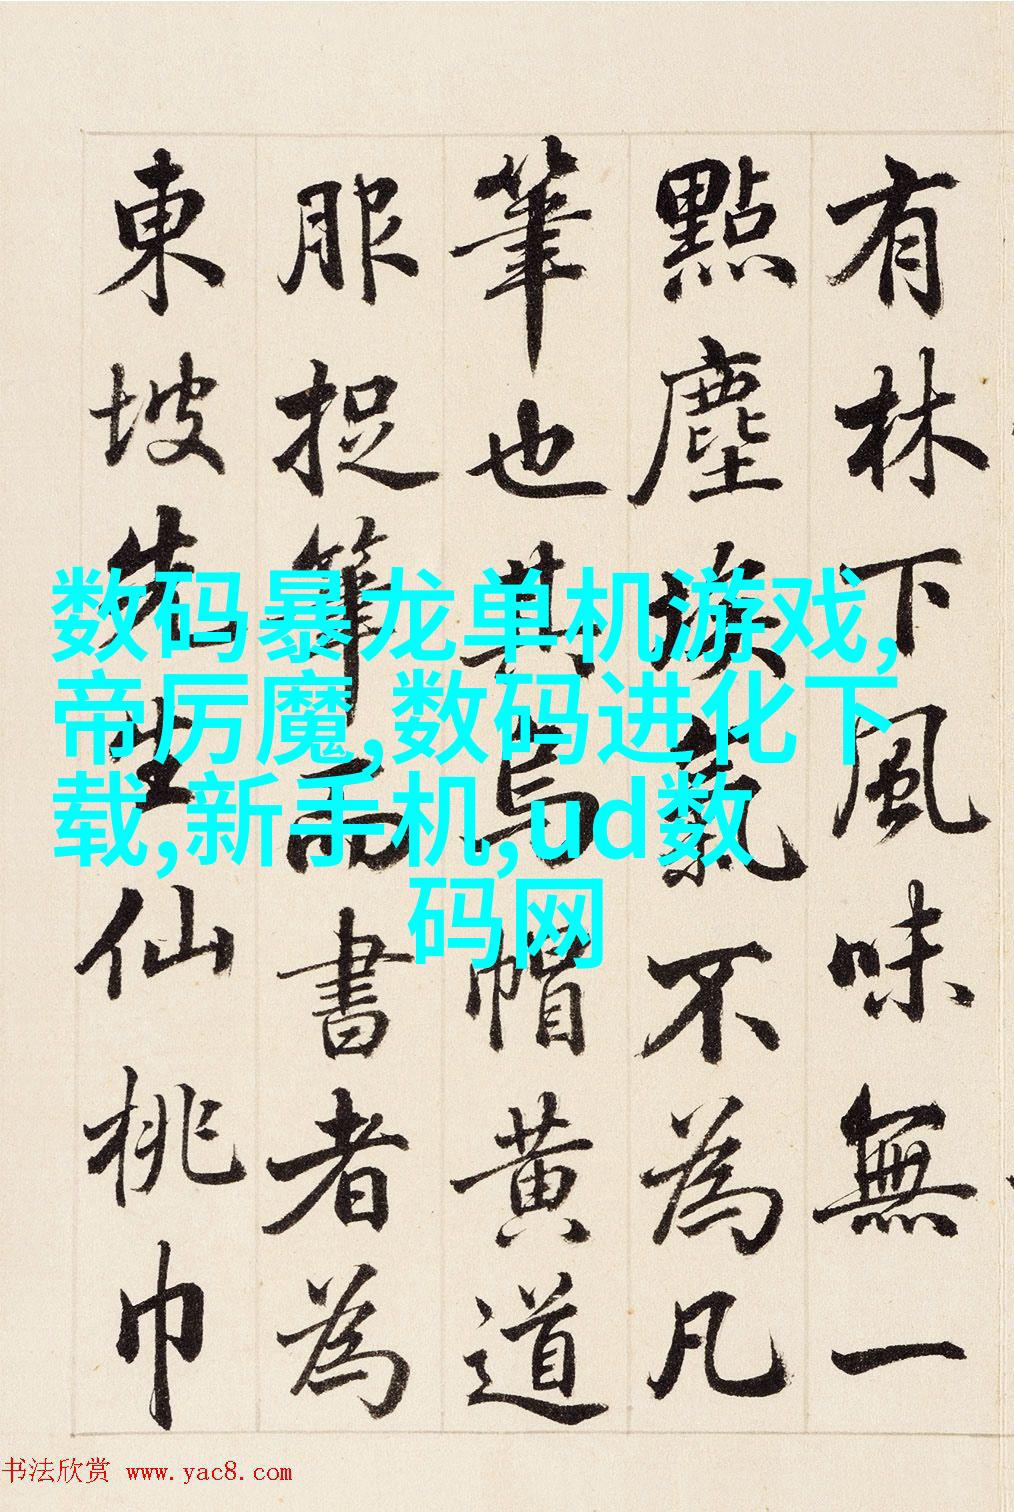 有林下風味無一
點塵埃氣不為凡
筆也其烏帽黃道
服捉筆而書者為
東坡先生仙桃巾
数码暴龙单机游戏,
帝厉魔,数码进化下
载,新手机,ud数
码网
书法欣赏 www.yac8.com